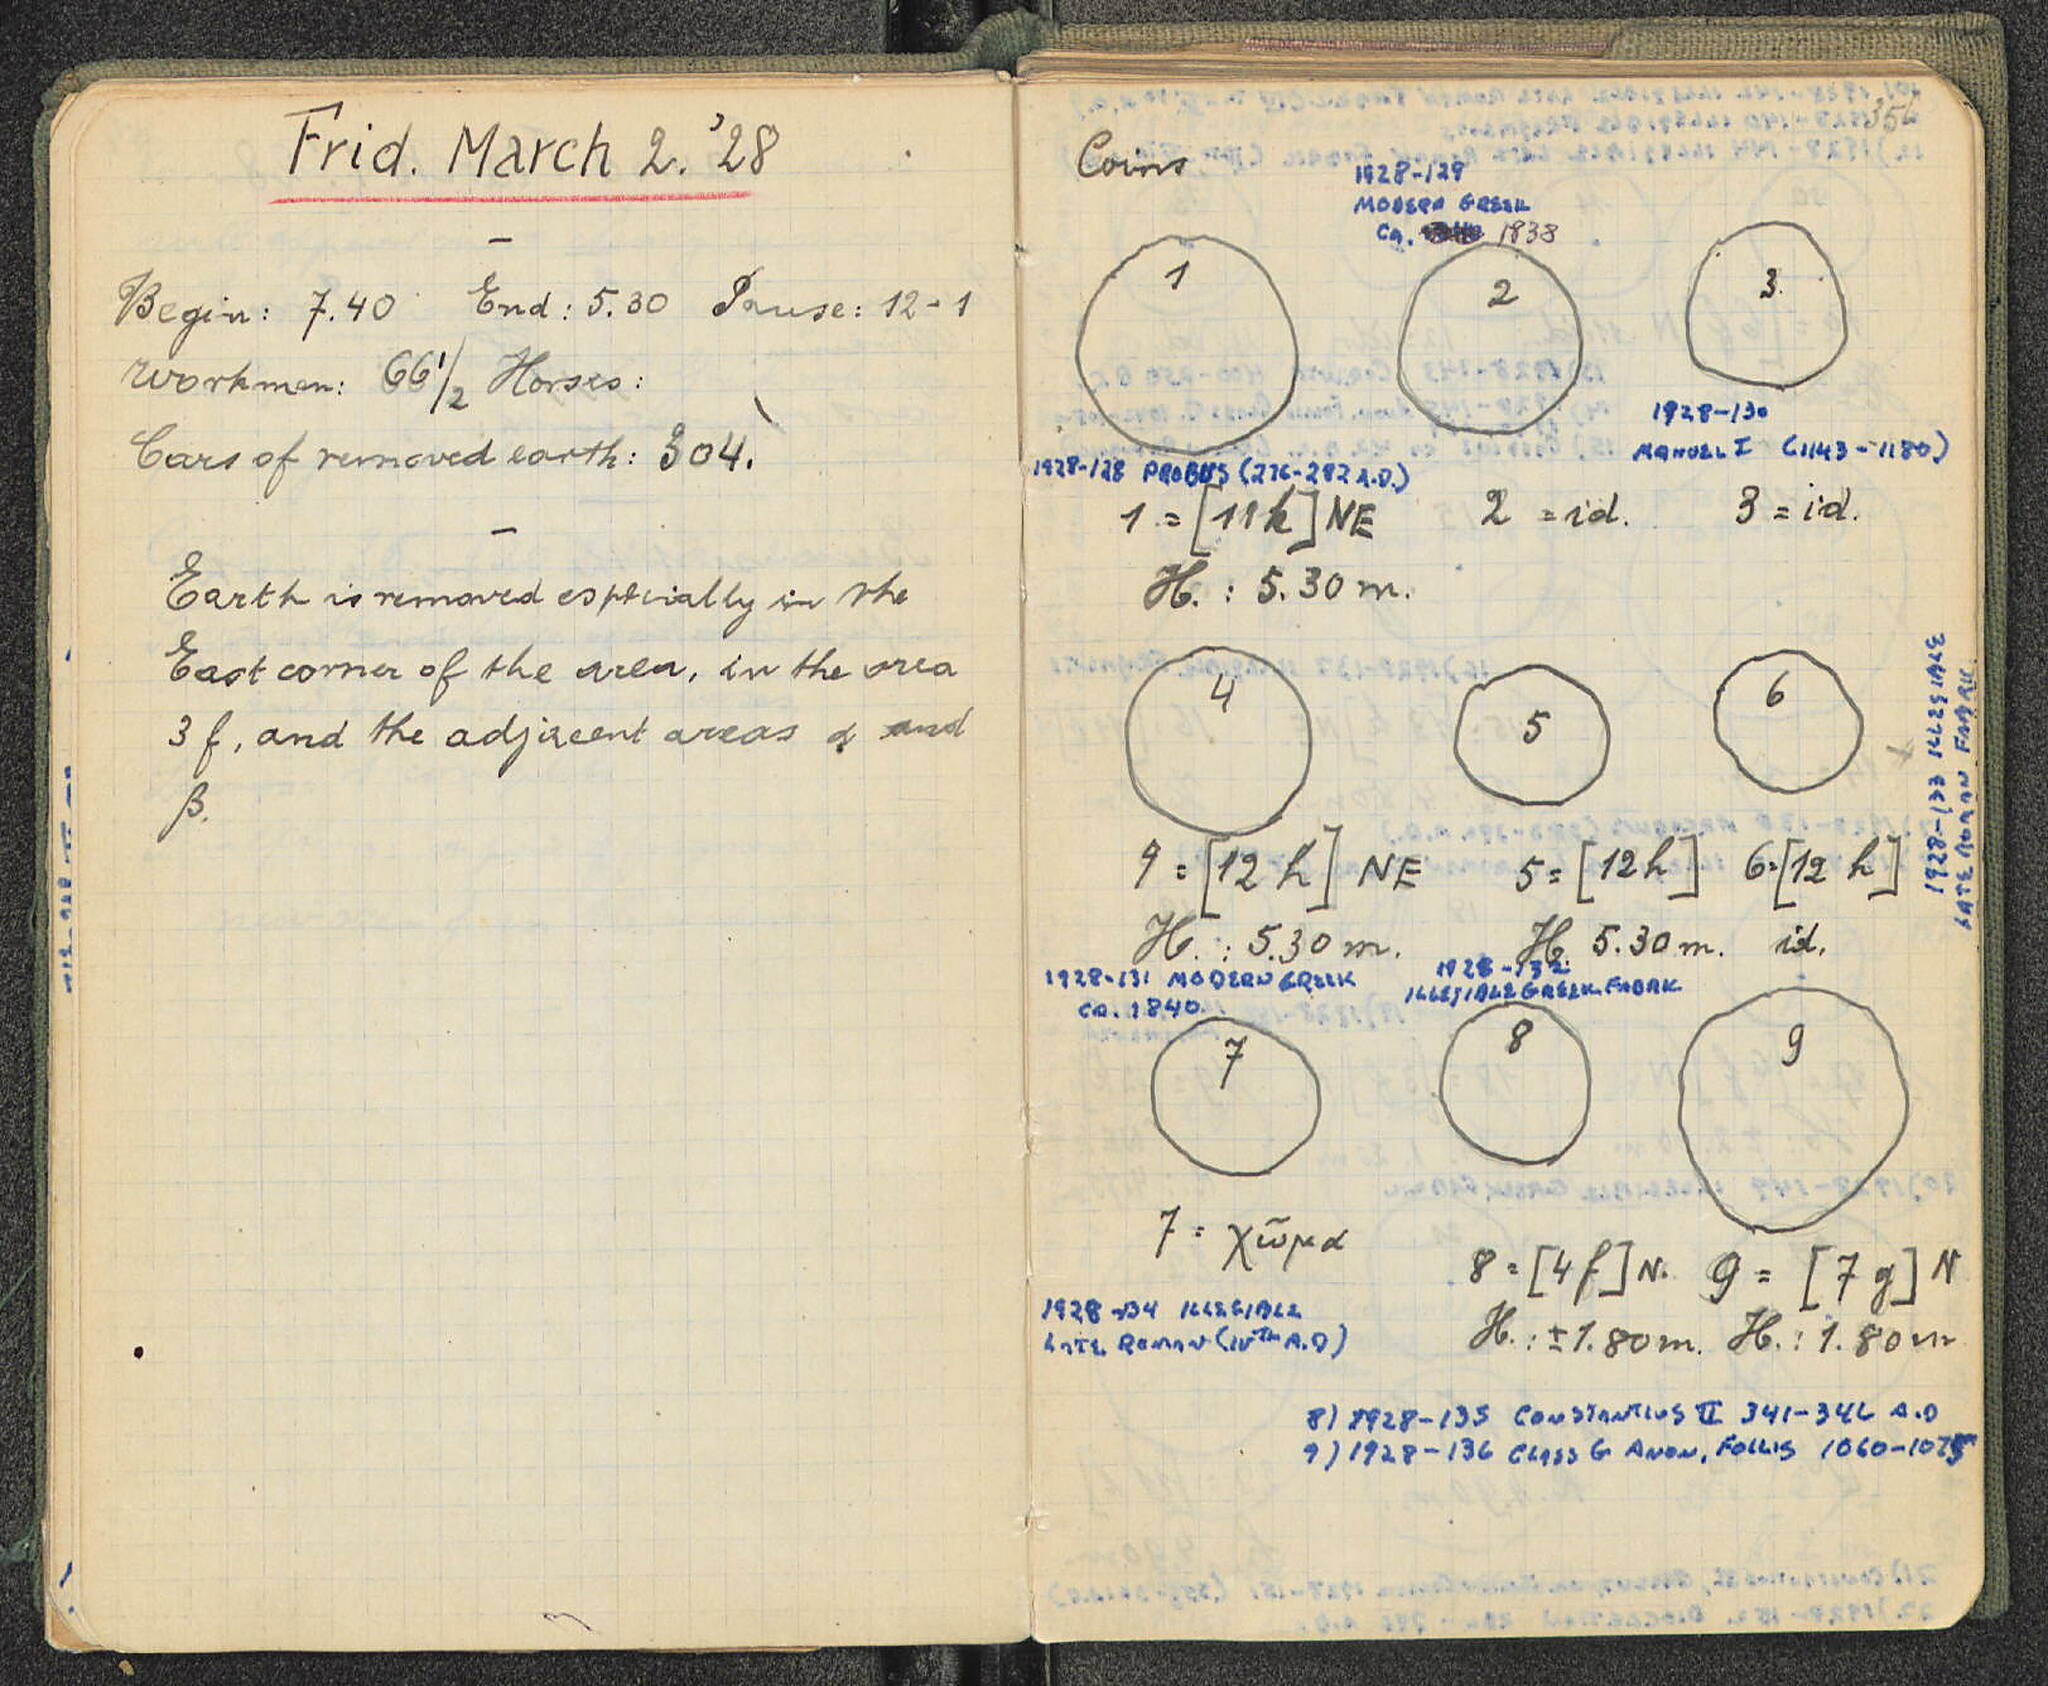 Frid. March 2. '28
Begin: 7.40 End: 5.30 Pause: 12-1
Workmen: 66 1/2 Horses:
Cars of removed earth: 304.
Earth is removed especially in the
East corner of the area, in the area
3 f, and the adjacent areas α and
β.
Coins
1928-129
MODERN GREEK
CA. 1838
1
2
3
1928-130
MANUEL I (1143-1180)
1928-128 PROBUS (276-282 A.D.)
1 = [11h] NE 2 = id. 3 = id.
H. : 5.30 m.
4
5
6
1928-133 ILLEGIBLE
LATE ROMAN FABRIC
4 = [12 h] NE 5 = [12h] 6 = [12 h]
H. : 5.30 m. H. 5.30 m. id.
1928-131 MODERN GREEK
CA. 1840
1928-132
ILLEGIBLE GREEK FABRK
7
8
9
7 = χῶμα
8 = [4f] N. 9 = [7 g] N
H. : ±1.80 m. H. : 1.80 m
1928-134 ILLEGIBLE
LATE ROMAN (IVTH A.D)
8) 1928-135 CONSTANTIUS II 341-346 A.D
9) 1928-136 CLASS G ANON. FOLLIS 1060-1075